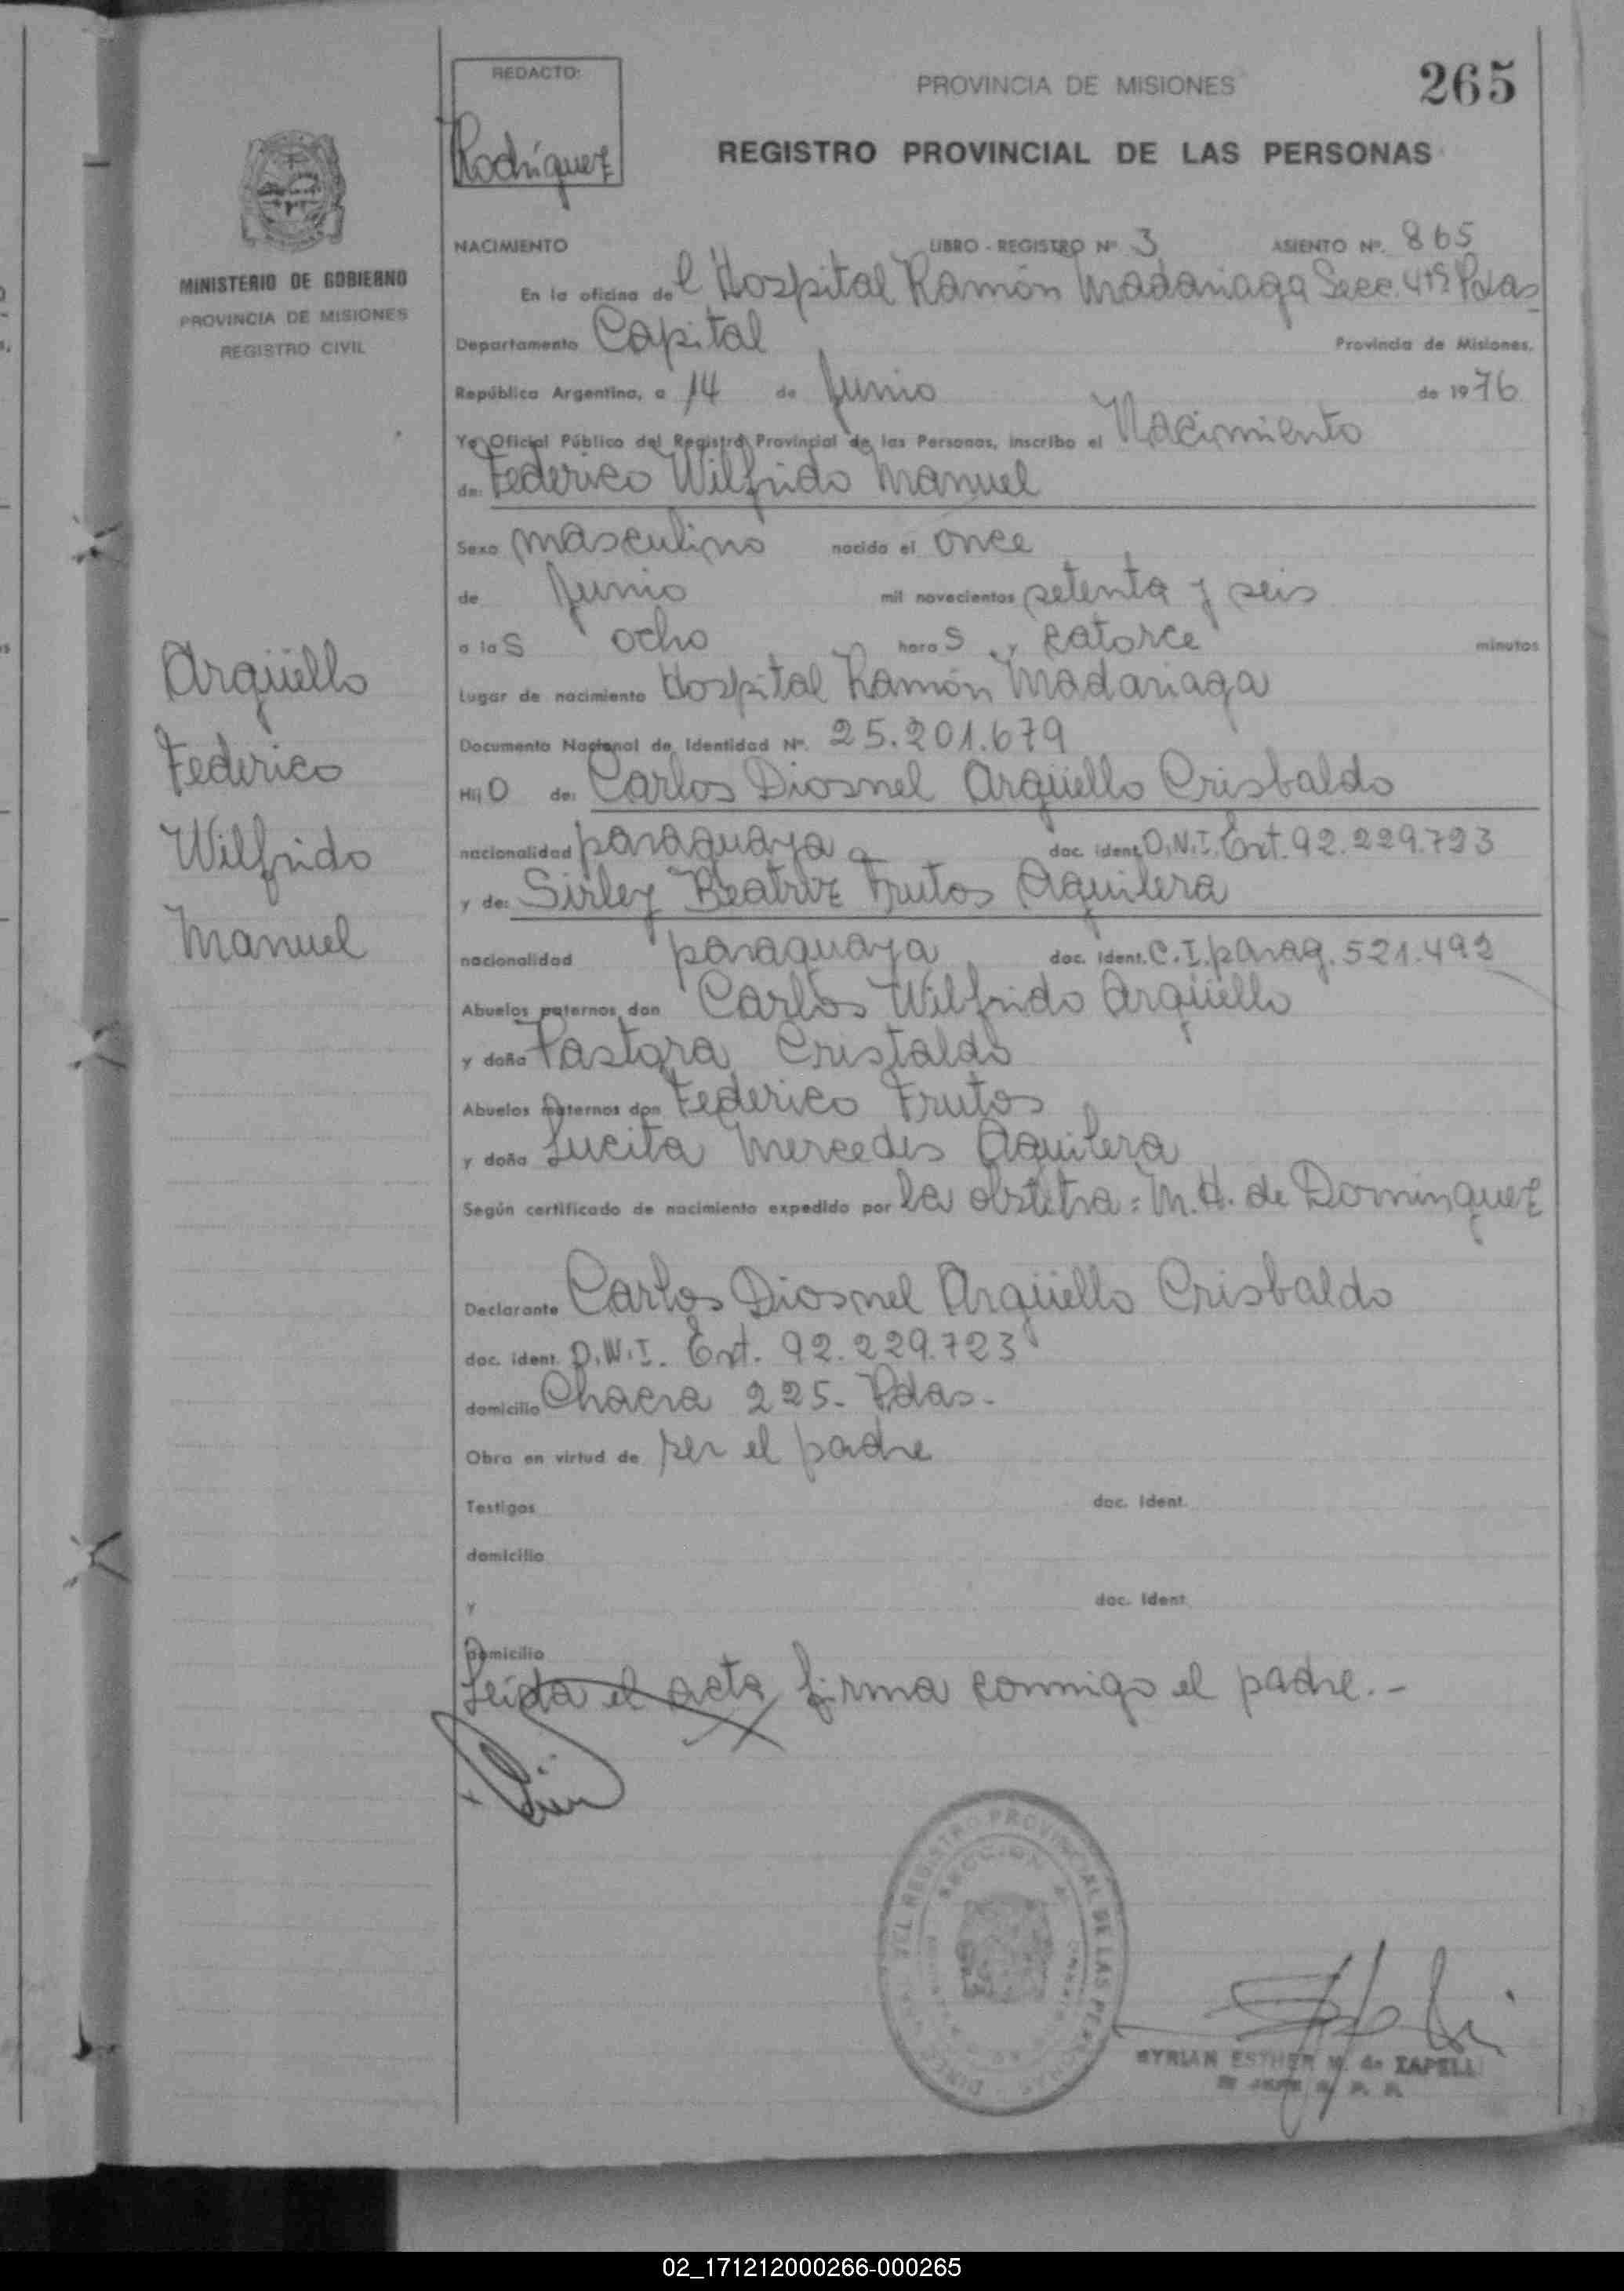 REDACTO:
Rodríguez
PROVINCIA DE MISIONES
265
REGISTRO PROVINCIAL DE LAS PERSONAS
MINISTERIO DE GOBIERNO
PROVINCIA DE MISIONES
REGISTRO CIVIL
Argüello
Federico
Wilfrido
Manuel
NACIMIENTO LIBRO - REGISTRO Nº 3 ASIENTO Nº. 865
En la oficina del Hospital Ramón Madariaga Secc. 4ta Pdas
Departamento Capital Provincia de Misiones.
República Argentina, a 14 de Junio de 1976
Yo Oficial Público del Registro Provincial de las Personas, inscribo el Nacimiento
de: Federico Wilfrido Manuel
Sexo masculino nacido el once
de Junio mil novecientos setenta y seis
a las ocho horas y catorce minutos
Lugar de nacimiento Hospital Ramón Madariaga
Documento Nacional de Identidad Nº. 25.201.679
Hijo de: Carlos Diosnel Argüello Crisbaldo
nacionalidad paraguaya doc. ident. D.N.I. Ext. 92.229.723
y de: Sirley Beatriz Frutos Aguilera
nacionalidad paraguaya doc. ident. C.I. parag. 521.492
Abuelos paternos don Carlos Wilfrido Argüello
y doña Pastora Cristaldo
Abuelos maternos don Federico Frutos
y doña Lucita Mercedes Aguilera
Según certificado de nacimiento expedido por la obstetra: M.H. de Dominguez
Declarante Carlos Diosnel Argüello Crisbaldo
doc. ident. D.N.I. Ext. 92.229.723
domicilio Chacra 225- Pdas.-
Obra en virtud de ser el padre
Testigos doc. ident.
domicilio
y doc. ident.
domicilio
Leída el acta firma conmigo el padre.-
REGISTRO PROVINCIAL DE LAS PERSONAS
ESTHER M. de ZAPELLI
02_171212000266-000265